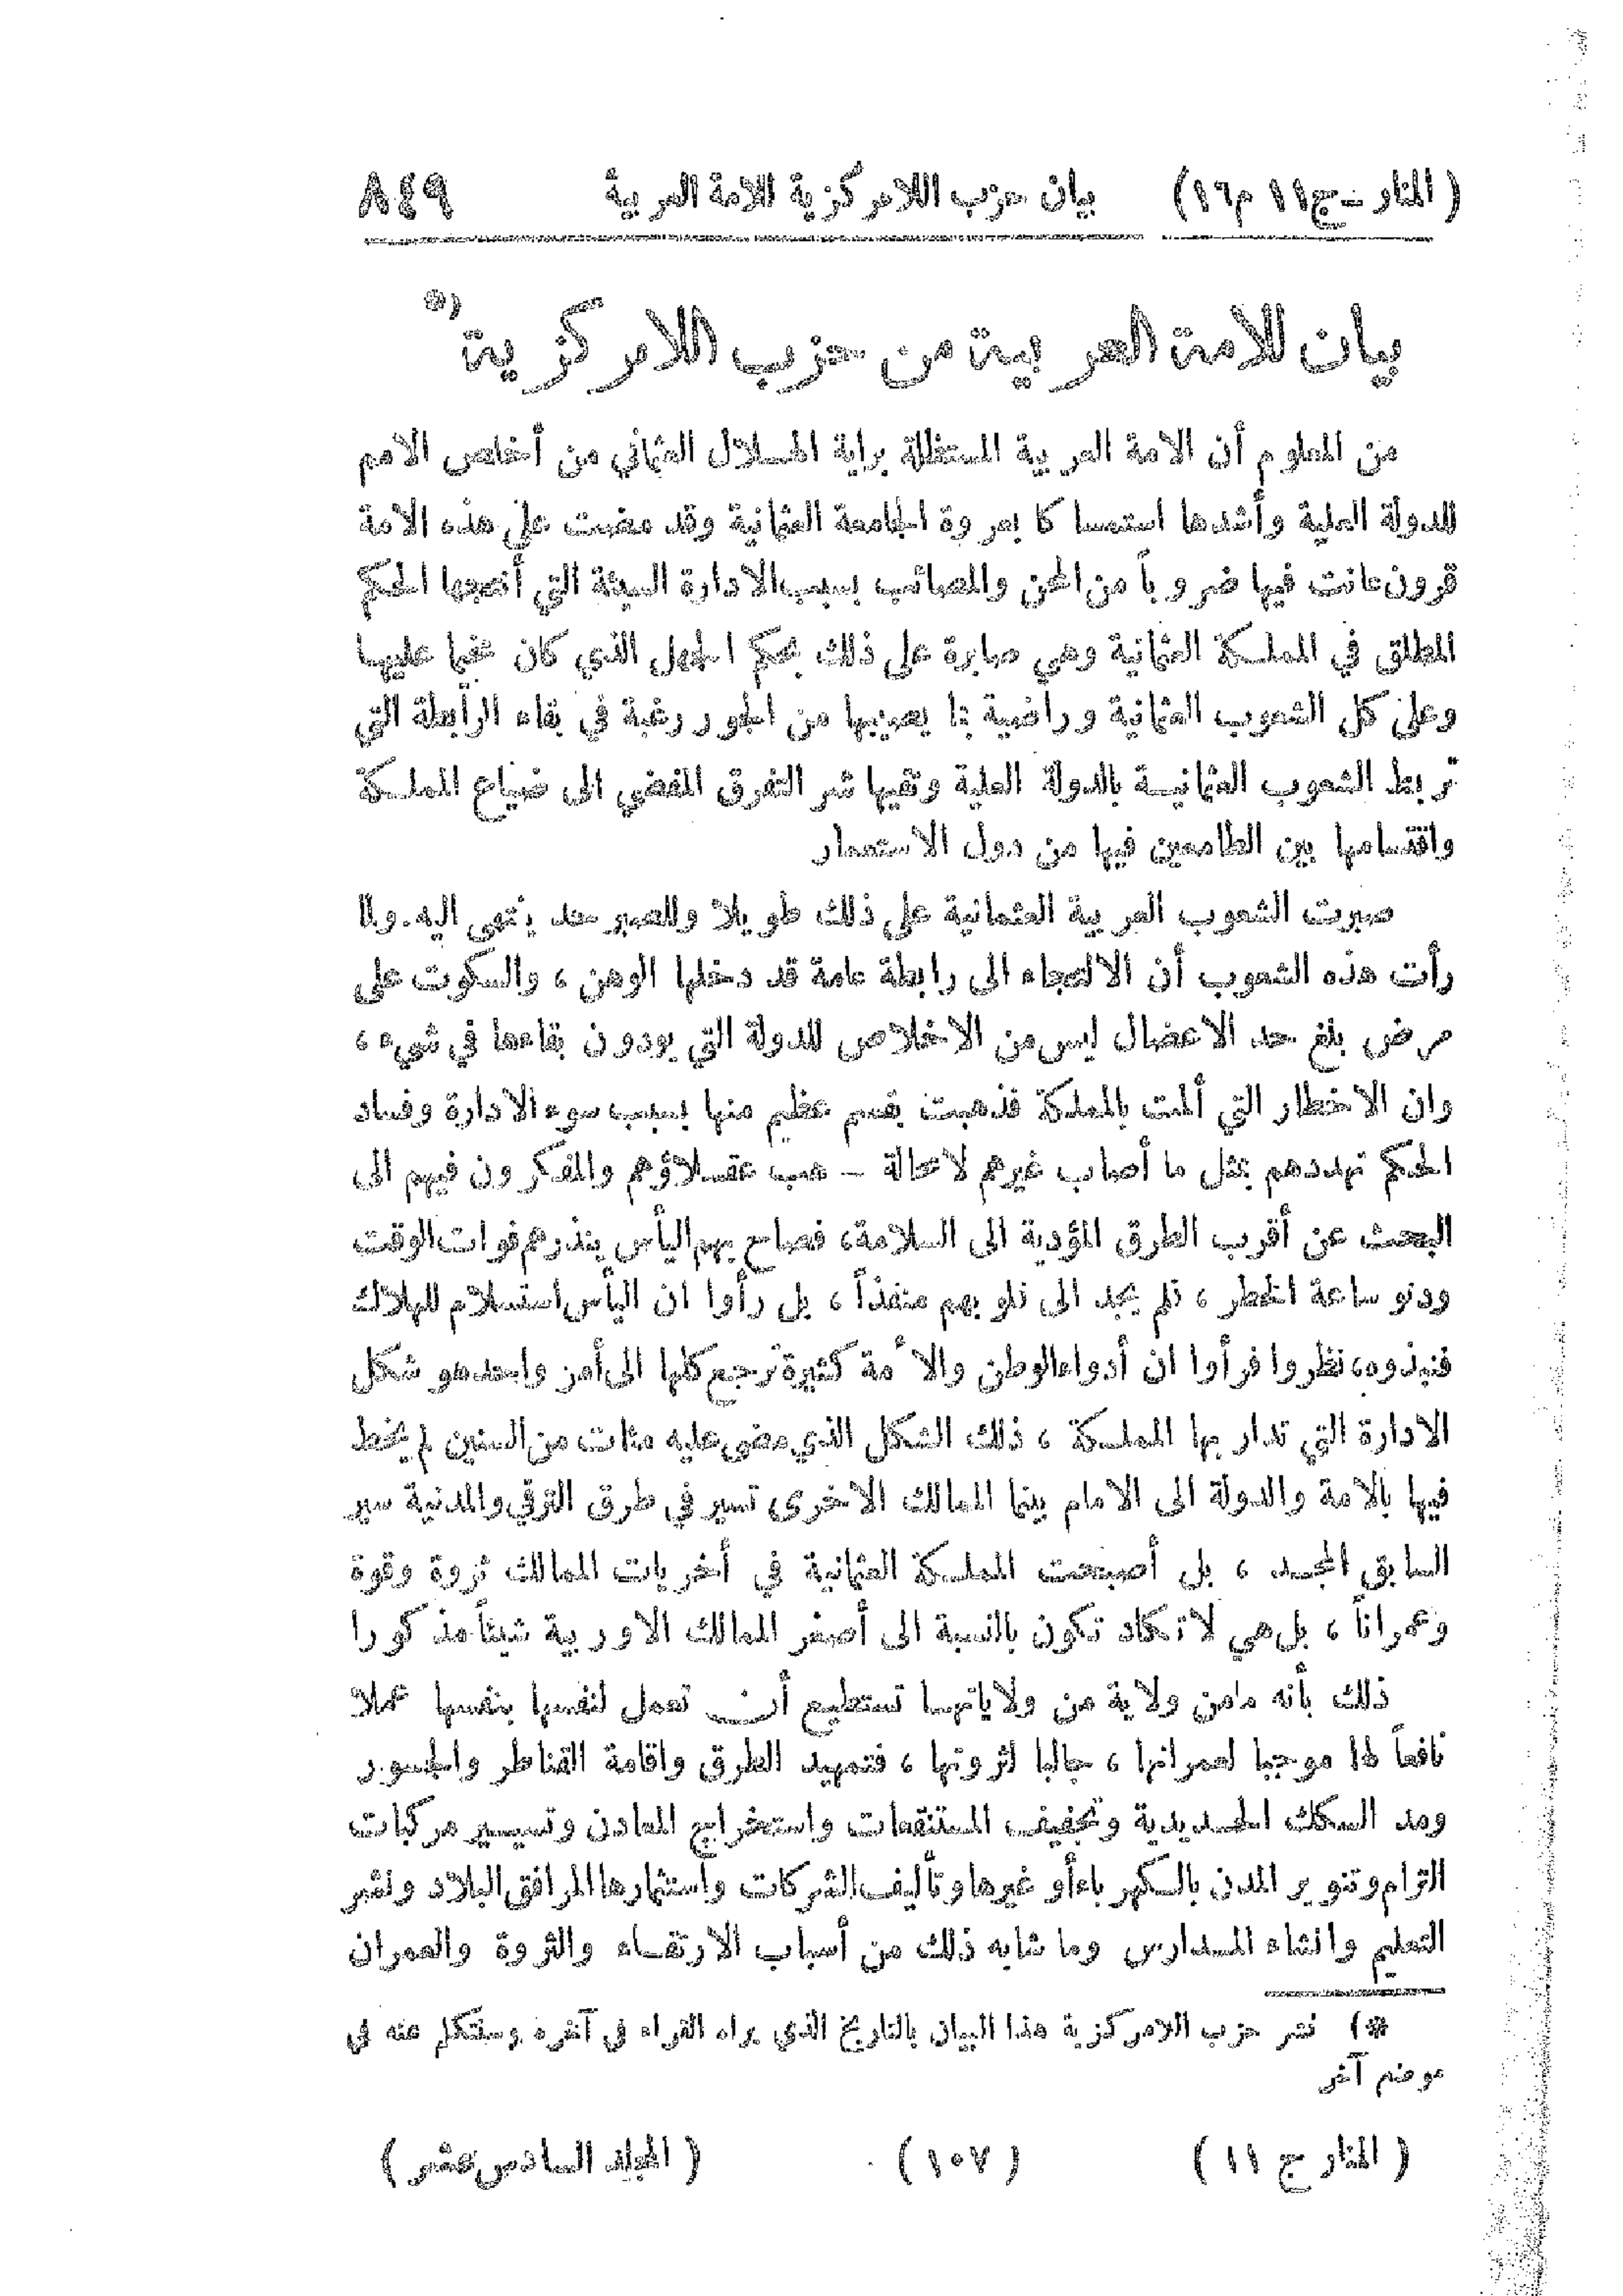 (المنار ـ ج ١١ م ١٦) بيان حزب اللامركزية للامة العربية ٨٤٩
بيان للامة العربية من حزب اللامركزية *)
من المعلوم أن الامة العربية المستظلة براية الهلال العثماني من أخلص الامم
للدولة العلية وأشدها استمساكا بعروة الجامعة العثمانية وقد مضت على هذه الامة
قرون عانت فيها ضروباً من المحن والمصائب بسبب الادارة السيئة التي أنتجها الحكم
المطلق في المملكة العثمانية وهي صابرة على ذلك بحكم الجهل الذي كان مخيما عليها
وعلى كل الشعوب العثمانية وراضية بما يصيبها من الجور رغبة في بقاء الرابطة التي
تربط الشعوب العثمانية بالدولة العلية وتقيها شر التفرق المفضي الى ضياع المملكة
واقتسامها بين الطامعين فيها من دول الاستعمار
صبرت الشعوب العربية العثمانية على ذلك طويلا وللصبر حد ينتهي اليه. ولما
رأت هذه الشعوب أن الالتجاء الى رابطة عامة قد دخلها الوهن ، والسكوت على
مرض بلغ حد الاعضال ليس من الاخلاص للدولة التي يودون بقاءها في شيء ،
وان الاخطار التي ألمت بالمملكة فذهبت بقسم عظيم منها بسبب سوء الادارة وفساد
الحكم تهددهم بمثل ما أصاب غيرهم لا محالة – هب عقلاؤهم والمفكرون فيهم الى
البحث عن أقرب الطرق المؤدية الى السلامة، فصاح بهم اليأس ينذرهم فوات الوقت
ودنو ساعة الخطر ، فلم يجد الى قلوبهم منفذاً ، بل رأوا ان اليأس استسلام للهلاك
فنبذوه، نظروا فرأوا ان أدواء الوطن والأمة كثيرة ترجع كلها الى أمر واحد هو شكل
الادارة التي تدار بها المملكة ، ذلك الشكل الذي مضى عليه مئات من السنين لم يخط
فيها بالامة والدولة الى الامام بينما الممالك الاخرى تسير في طرق الترقي والمدنية سير
السابق المجد ، بل أصبحت المملكة العثمانية في أخريات الممالك ثروة وقوة
وعمراناً ، بل هي لا تكاد تكون بالنسبة الى أصغر الممالك الاوربية شيئاً مذكورا
ذلك بأنه ما من ولاية من ولاياتها تستطيع أن تعمل لنفسها بنفسها عملا
نافعاً لها موجبا لعمرانها ، جالبا لثروتها ، فتمهيد الطرق واقامة القناطر والجسور
ومد السكك الحديدية وتجفيف المستنقعات واستخراج المعادن وتسيير مركبات
الترام وتنوير المدن بالكهرباء أو غيرها وتأليف الشركات واستثمارها المرافق البلاد ونشر
التعليم وانشاء المدارس وما شابه ذلك من أسباب الارتقاء والثروة والعمران
*) نشر حزب اللامركزية هذا البيان بالتاريخ الذي يراه القراء في آخره وسنتكلم عنه في
موضع آخر
(المنار ج ١١) (١٠٧) (المجلد السادس عشر)